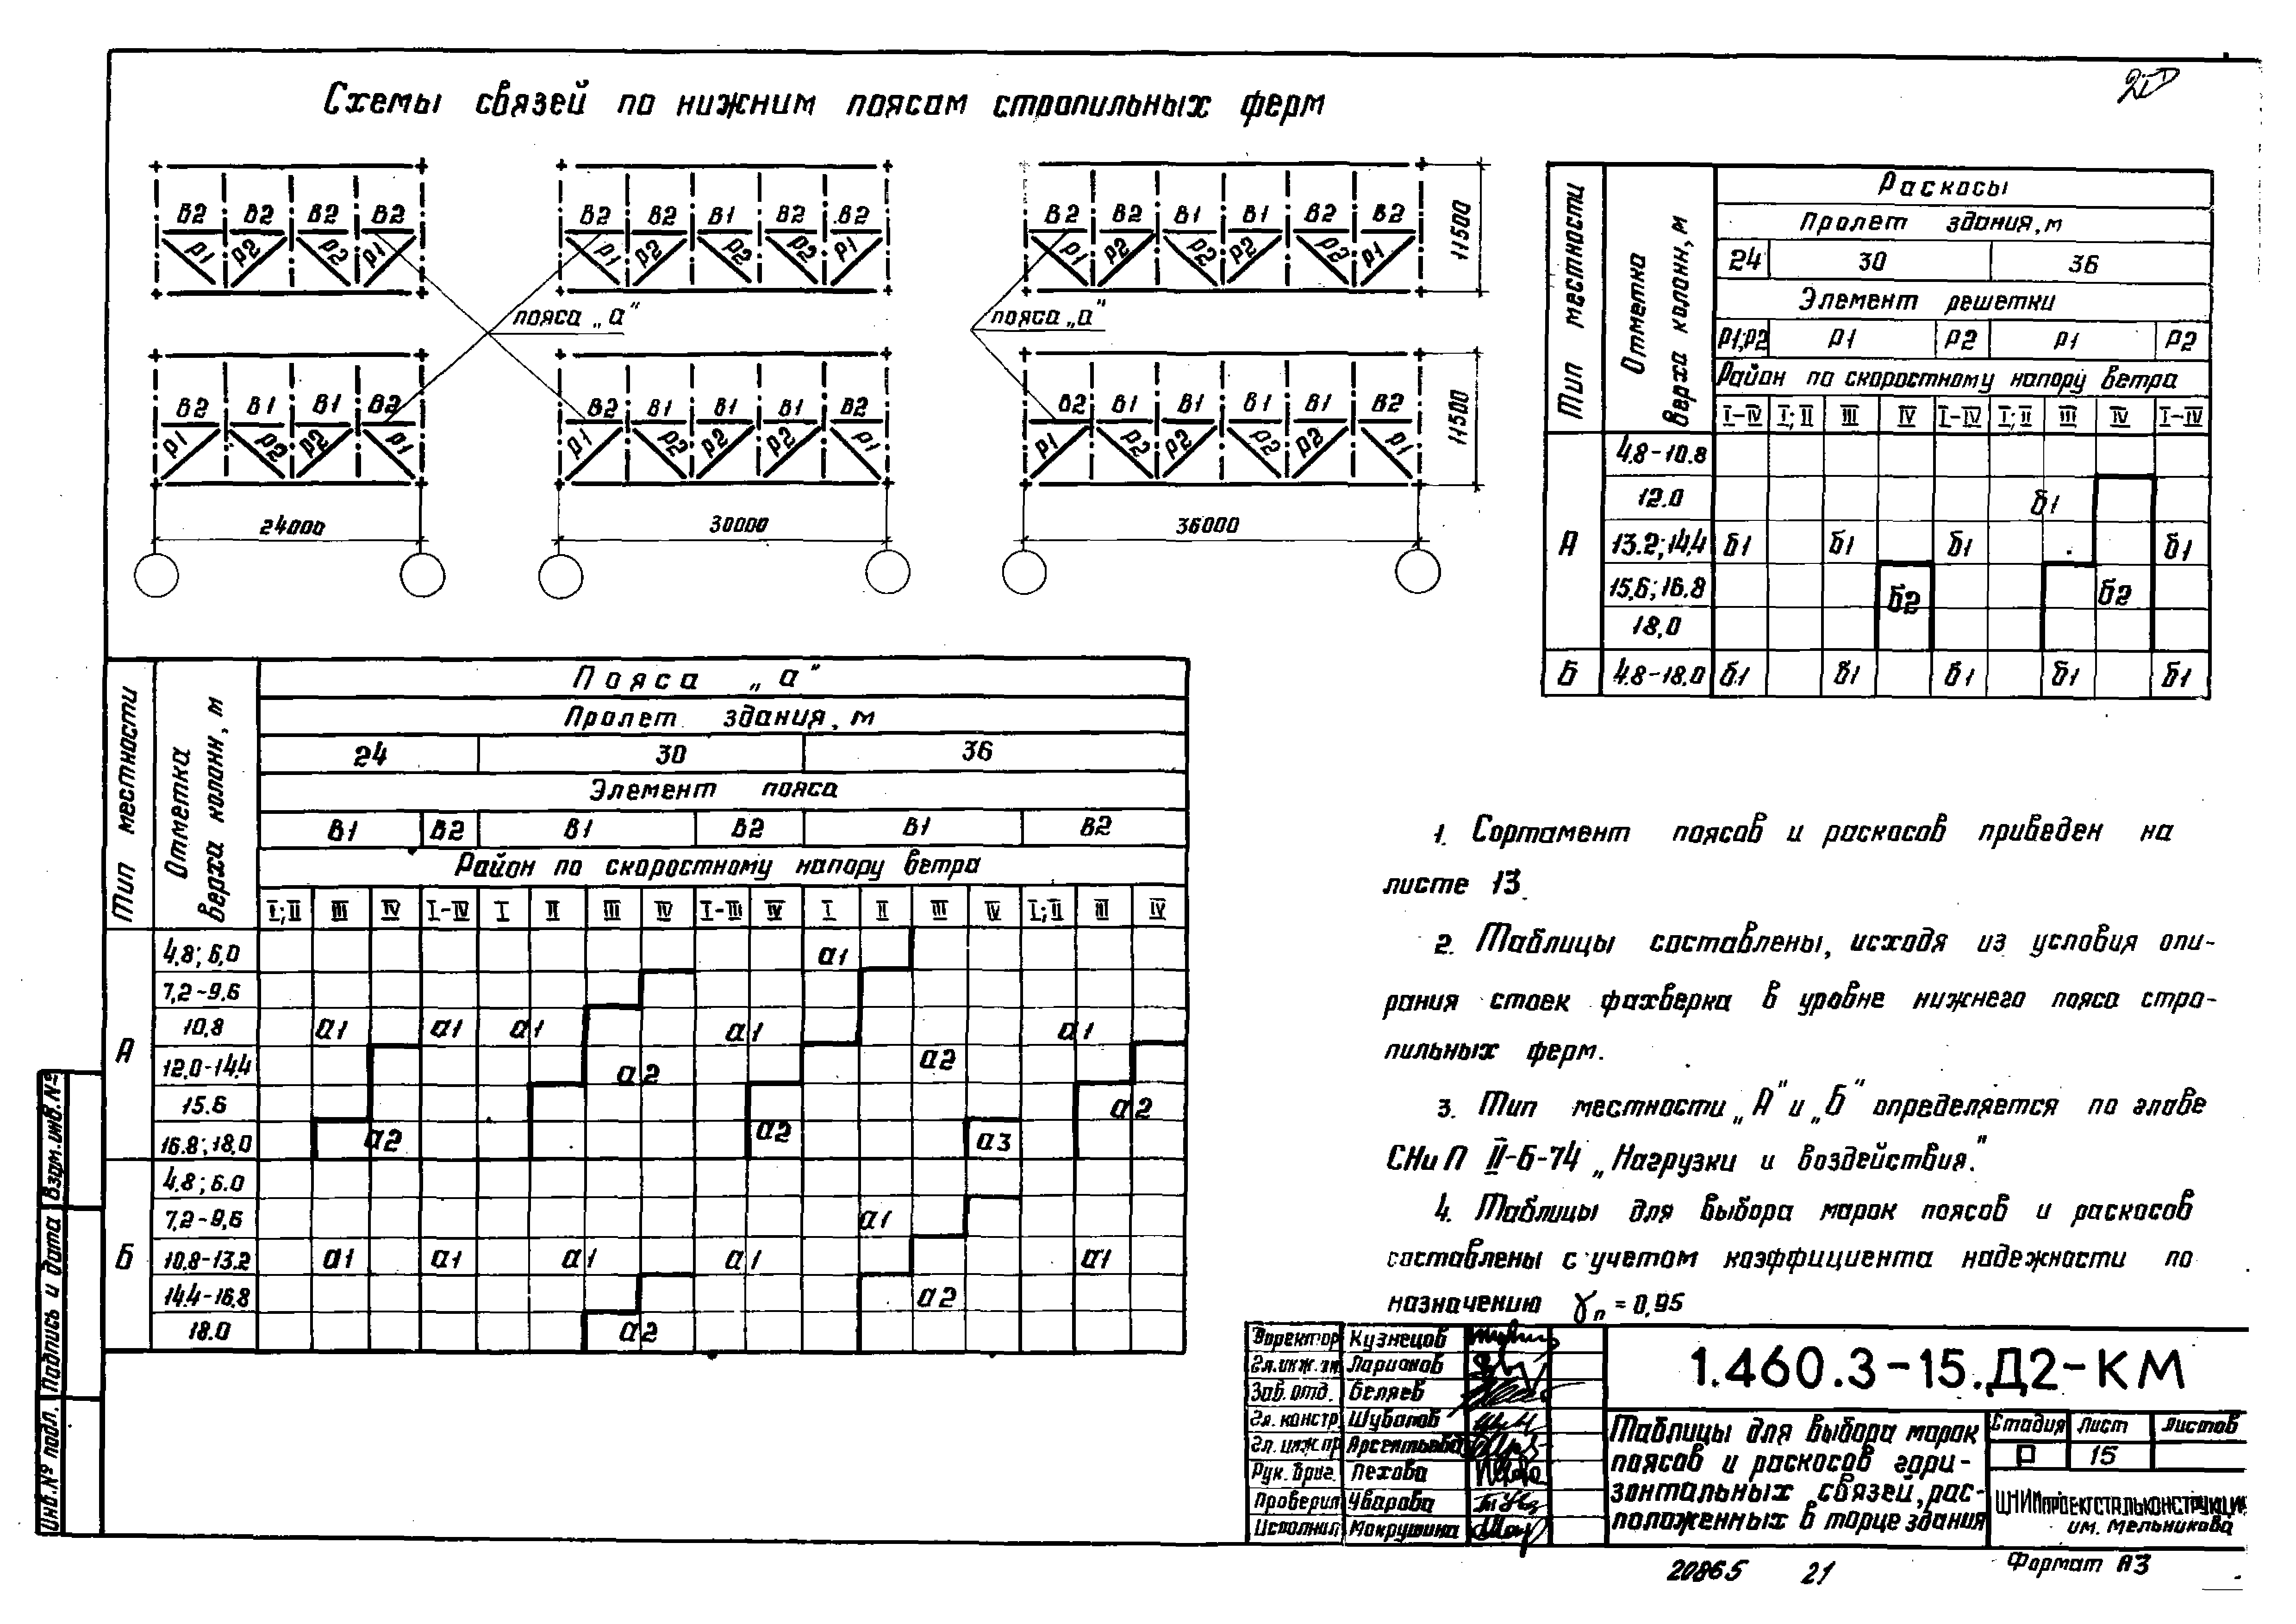 Схемы связей по нижним поясам стропильных ферм
В2 В2 В2 В2
Р1 Р2 Р2 Р1
В2 В2 В1 В2 В2
Р1 Р2 Р2 Р2 Р1
В2 В2 В1 В1 В2 В2
Р1 Р2 Р2 Р2 Р2 Р1
11500
пояса „а“
пояса „а“
В2 В1 В1 В2
Р1 Р2 Р2 Р1
В2 В1 В1 В1 В2
Р1 Р2 Р2 Р2 Р1
В2 В1 В1 В1 В1 В2
Р1 Р2 Р2 Р2 Р2 Р1
11500
24000
30000
36000
Тип местности
Отметка верха колонн, м
Раскосы
Пролет здания, м
24 30 36
Элемент решетки
Р1;Р2 Р1 Р2 Р1 Р2
Район по скоростному напору ветра
I-IV I;II III IV I-IV I;II III IV I-IV
4.8-10.8
12.0 б1
А 13.2;14.4 б1 б1 б1 б1
15,6;16.8 б2 б2
18,0
Б 4.8-18.0 б1 б1 б1 б1 б1
Тип местности
Отметка верха колонн, м
Пояса „а“
Пролет здания, м
24 30 36
Элемент пояса
В1 В2 В1 В2 В1 В2
Район по скоростному напору ветра
I;II III IV I-IV I II III IV I-III IV I II III IV I;II III IV
4.8; 6,0 а1
7,2-9.6
10,8 а1 а1 а1 а1 а1
А
12.0-14.4 а2 а2
15.6 а2
16.8; 18,0 а2 а2 а3
4.8; 6.0
7,2-9,6 а1
Б 10.8-13.2 а1 а1 а1 а1 а1
14.4-16,8 а2
18.0 а2
1. Сортамент поясов и раскосов приведен на
листе 13.
2. Таблицы составлены, исходя из условия опи-
рания стоек фахверка в уровне нижнего пояса стро-
пильных ферм.
3. Тип местности „А“ и „Б“ определяется по главе
СНиП II-6-74 „Нагрузки и воздействия.“
4. Таблицы для выбора марок поясов и раскосов
составлены с учетом коэффициента надежности по
назначению γп = 0,95
Директор Кузнецов
Гл.инж.ин. Ларионов
Зав. отд. Беляев
Гл. констр. Шувалов
Гл. инж.пр. Арсентьева
Рук. бриг. Пехова
Проверил Уварова
Исполнил Мокрушина
1.460.3-15.Д2-КМ
Таблицы для выбора марок
поясов и раскосов гори-
зонтальных связей, рас-
положенных в торце здания
Стадия Лист Листов
Р 15
ЦНИИПРОЕКТСТАЛЬКОНСТРУКЦИЯ
им. Мельникова
20865 21
Формат А3
Взам.инв.№
Подпись и дата
Инв.№ подл.